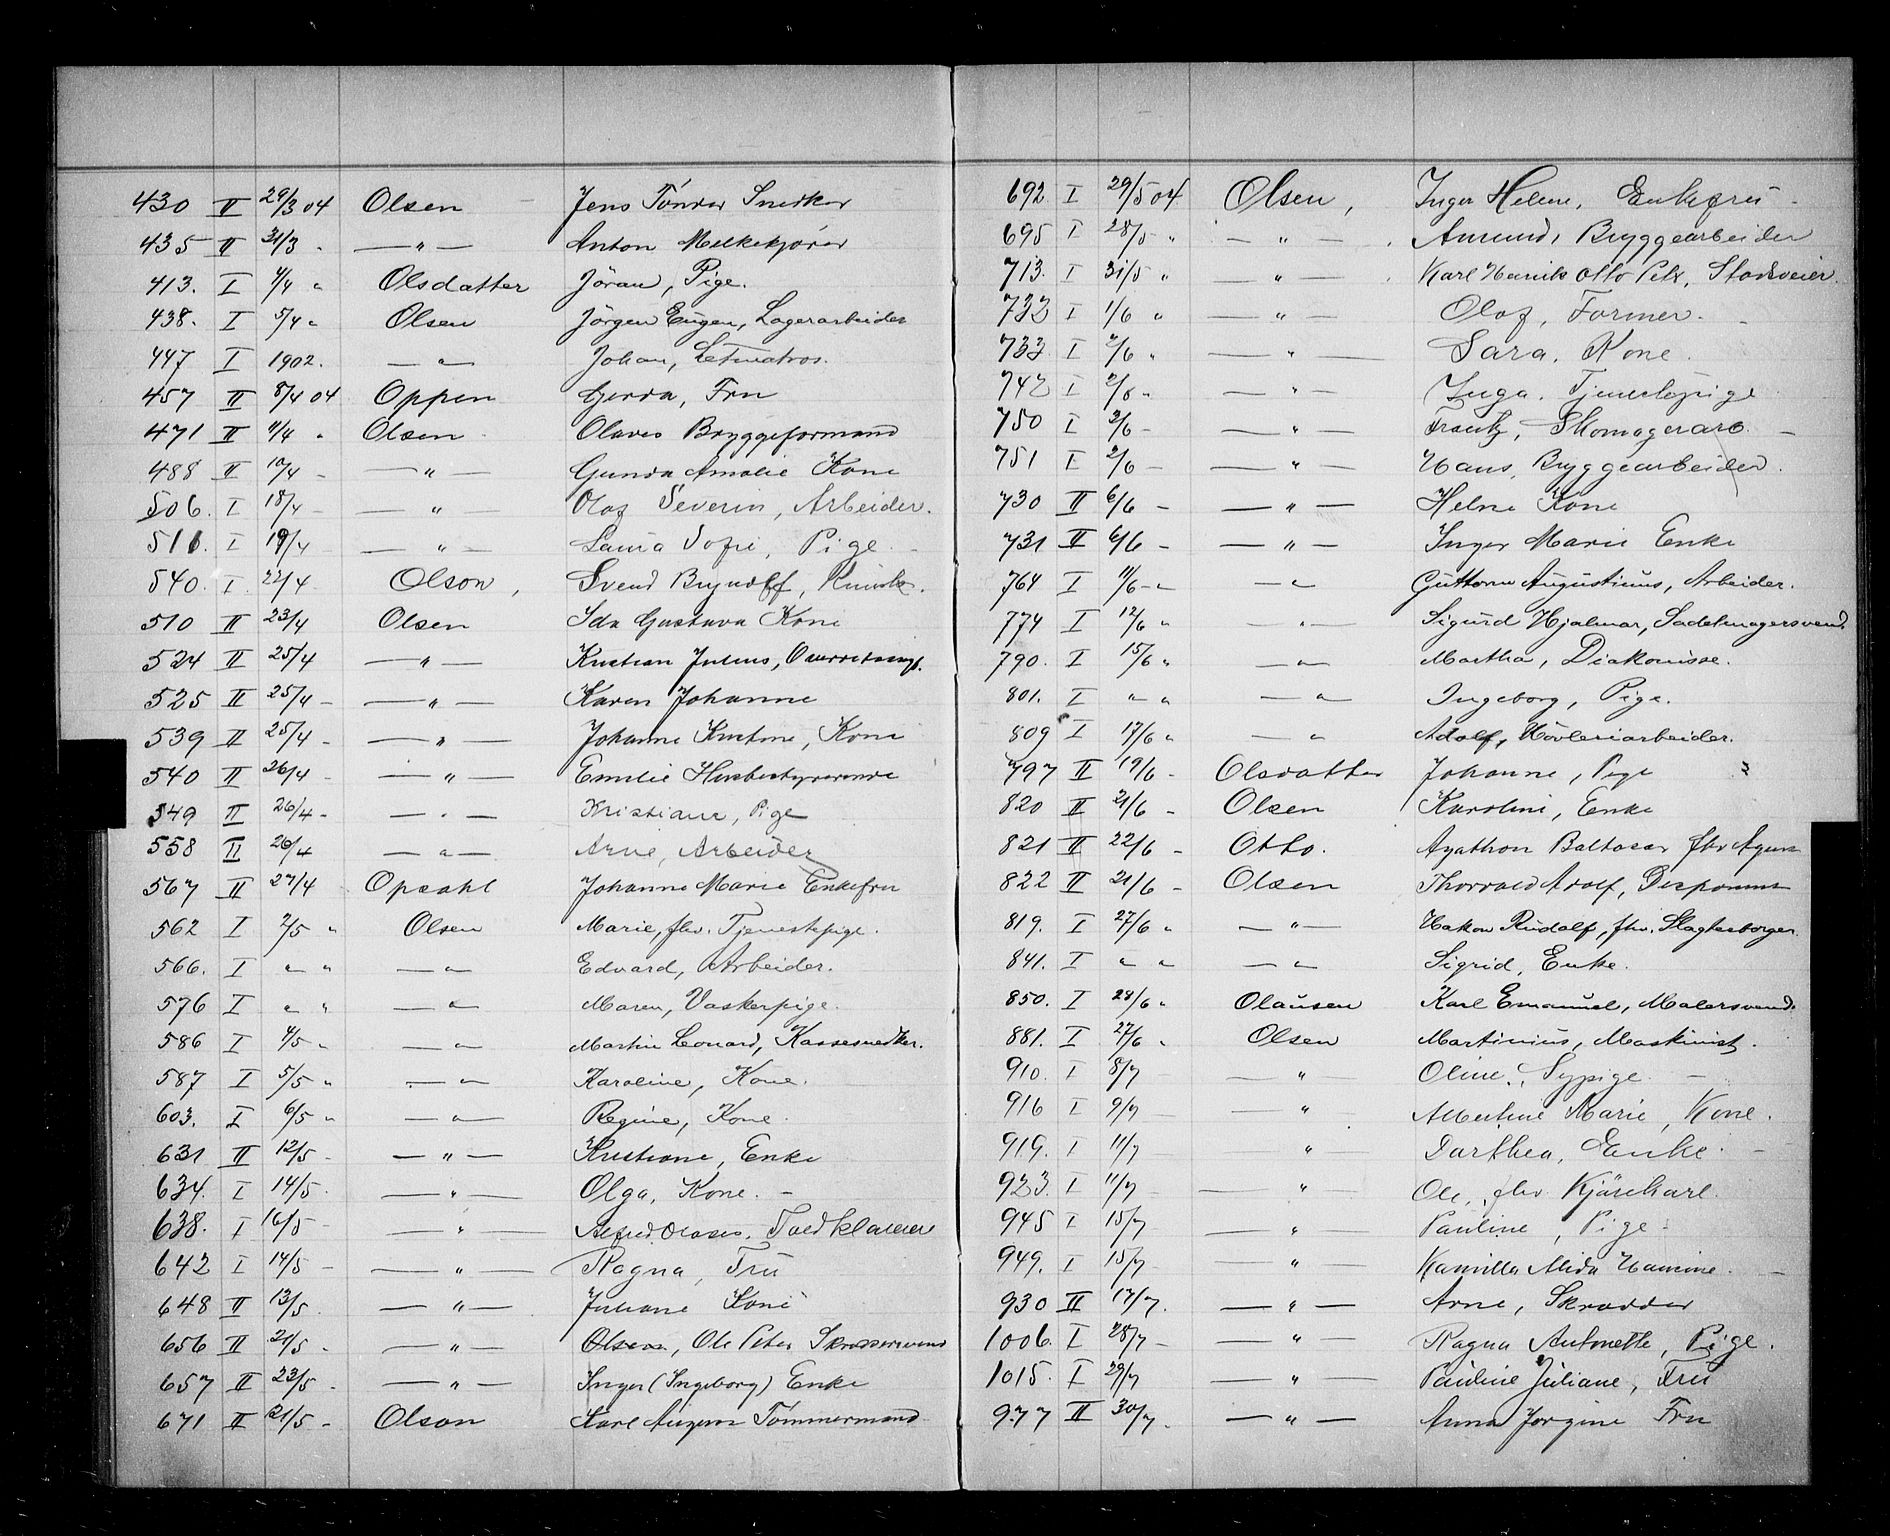 430 II 29/3 04 Olsen Jens Tönder Snedker
435 II 31/3 " — " — Anton Melkekjörer
413. I 4/4 " Olsdatter Jöran, Pige.
438. I 5/4 " Olsen Jörgen Eugen, Lagerarbeider
447 I 1902. — " — Johan, Letmatros.
457 II 8/4 04 Oppen Gerda, Fru
471 II 11/4 " Olsen Olaves Bryggeformand
488 II 17/4 - — " — Gunda Amalie Kone
506. I 18/4 - — " — Olaf Severin, Arbeider.
516. I 19/4 — " — Laura Sofie, Pige.
540. I. 22/4 Olson, Svend Bryndlff,
510 II 23/4 Olsen Ida Gustava Kone
524 II 25/4 — " — Kristian Julius,
525 II 25/4 - — " — Karen Johanne
539 II 25/4 - — " — Johanne Kristine, Kone
540 II 26/4 - — " — Emilie Husbestyrerinde
549 II 26/4 - — " — Kristiane, Pige
558 II 26/4 — " — Arne, Arbeider
567 II 27/4 Opsahl Johanne Marie Enkefru
562 I 2/5 " Olsen Marie, fhv. Tjenestepige.
566. I " " — " — Edvard, Arbeider.
576 I " " — " — Maren, Vaskerpige.
586 I 4/5 " — " — Martin Leonard, Kassesnedker.
587 I 5/5 " — " — Karoline, Kone.
603. I 6/5 " — " — Regine, Kone.
631 II 12/5 - — " — Kristiane, Enke
634. I 14/5. — " — Olga, Kone. -
638. I 16/5 - — " — Alfred Olaves,
642 I 14/5 - — " — Ragna, Fru
648 II 13/5. — " — Juliane Kone
656 II 21/5 - — " — Olsen, Ole Peter Skræddersvend
657 II 23/5 - — " — Inger (Ingeborg) Enke
671 II 21/5 - Olson Karl August Tömmermand
692. I 29/5 04 Olsen, Inger Helene, Enkefru -
695 I 28/5 " — " — Amund, Bryggearbeider
713. I 31/5 " — " — Karl Henrik Otto Petr.
732 I 1/6 " — " — Olaf, Former. -
733. I 2/6 " — " — Sara, Kone.
742 I 2/6 " — " — Inga, Tjenestepige
750 I 2/6 - — " — Frantz, Skomagerarb. -
751 I 2/6 - — " — Hans, Bryggearbeider.
730 II 6/6 - — " — Helne Kone
731 II 6/6 - — " — Inger Marie Enke
764 I 11/6 - " — " Guttorm Augustinus, Arbeider.
774 I 12/6 " " Sigurd Hjalmar, Sadelmagersvend.
790. I 15/6 " — " — Martha, Diakonisse.
801. I " " — " — Ingeborg, Pige.
809 I 17/6 " — " Adolf, Hövleriarbeider.
797 II 19/6 - Olsdatter Johanne, Pige
820 II 21/6 - Olsen Karoline, Enke
821 II 22/6 - Otto. Agathon Baltazar fhv Agent
822 II 21/6 - Olsen Thorvald Adolf, Disponent
819. I 27/6 " — " — Hakon Rudolf, fhv. Slagterborger.
841. I " " — " Sigrid, Enke.
850. I 28/6 " Olausen Karl Emanuel, Malersvend.
881. I 27/6 " Olsen Martinius, Maskinist.
910. I 8/7 — " — Oline, Sypige. -
916 I 9/7 — " Albertine Marie, Kone.
919. I 11/7 " Dorthea, Enke. -
923. I 11/7 — " — Ole, fhv. Kjörekarl.
945 I 15/7 — " Pauline, Pige -
949. I 15/7 " Kamilla Alida Hansine. -
930 II 17/7. — " — Arne, Skrædder
1006. I 28/7 - — " — Ragna Antonette, Pige.
1015. I 29/7 — " — Pauline Juliane, Fru
977 II 30/7. — " — Anna Jorgine Fru